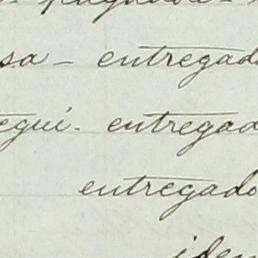 pagadora -
sa - entregado
egui. entregad
entregado
idem